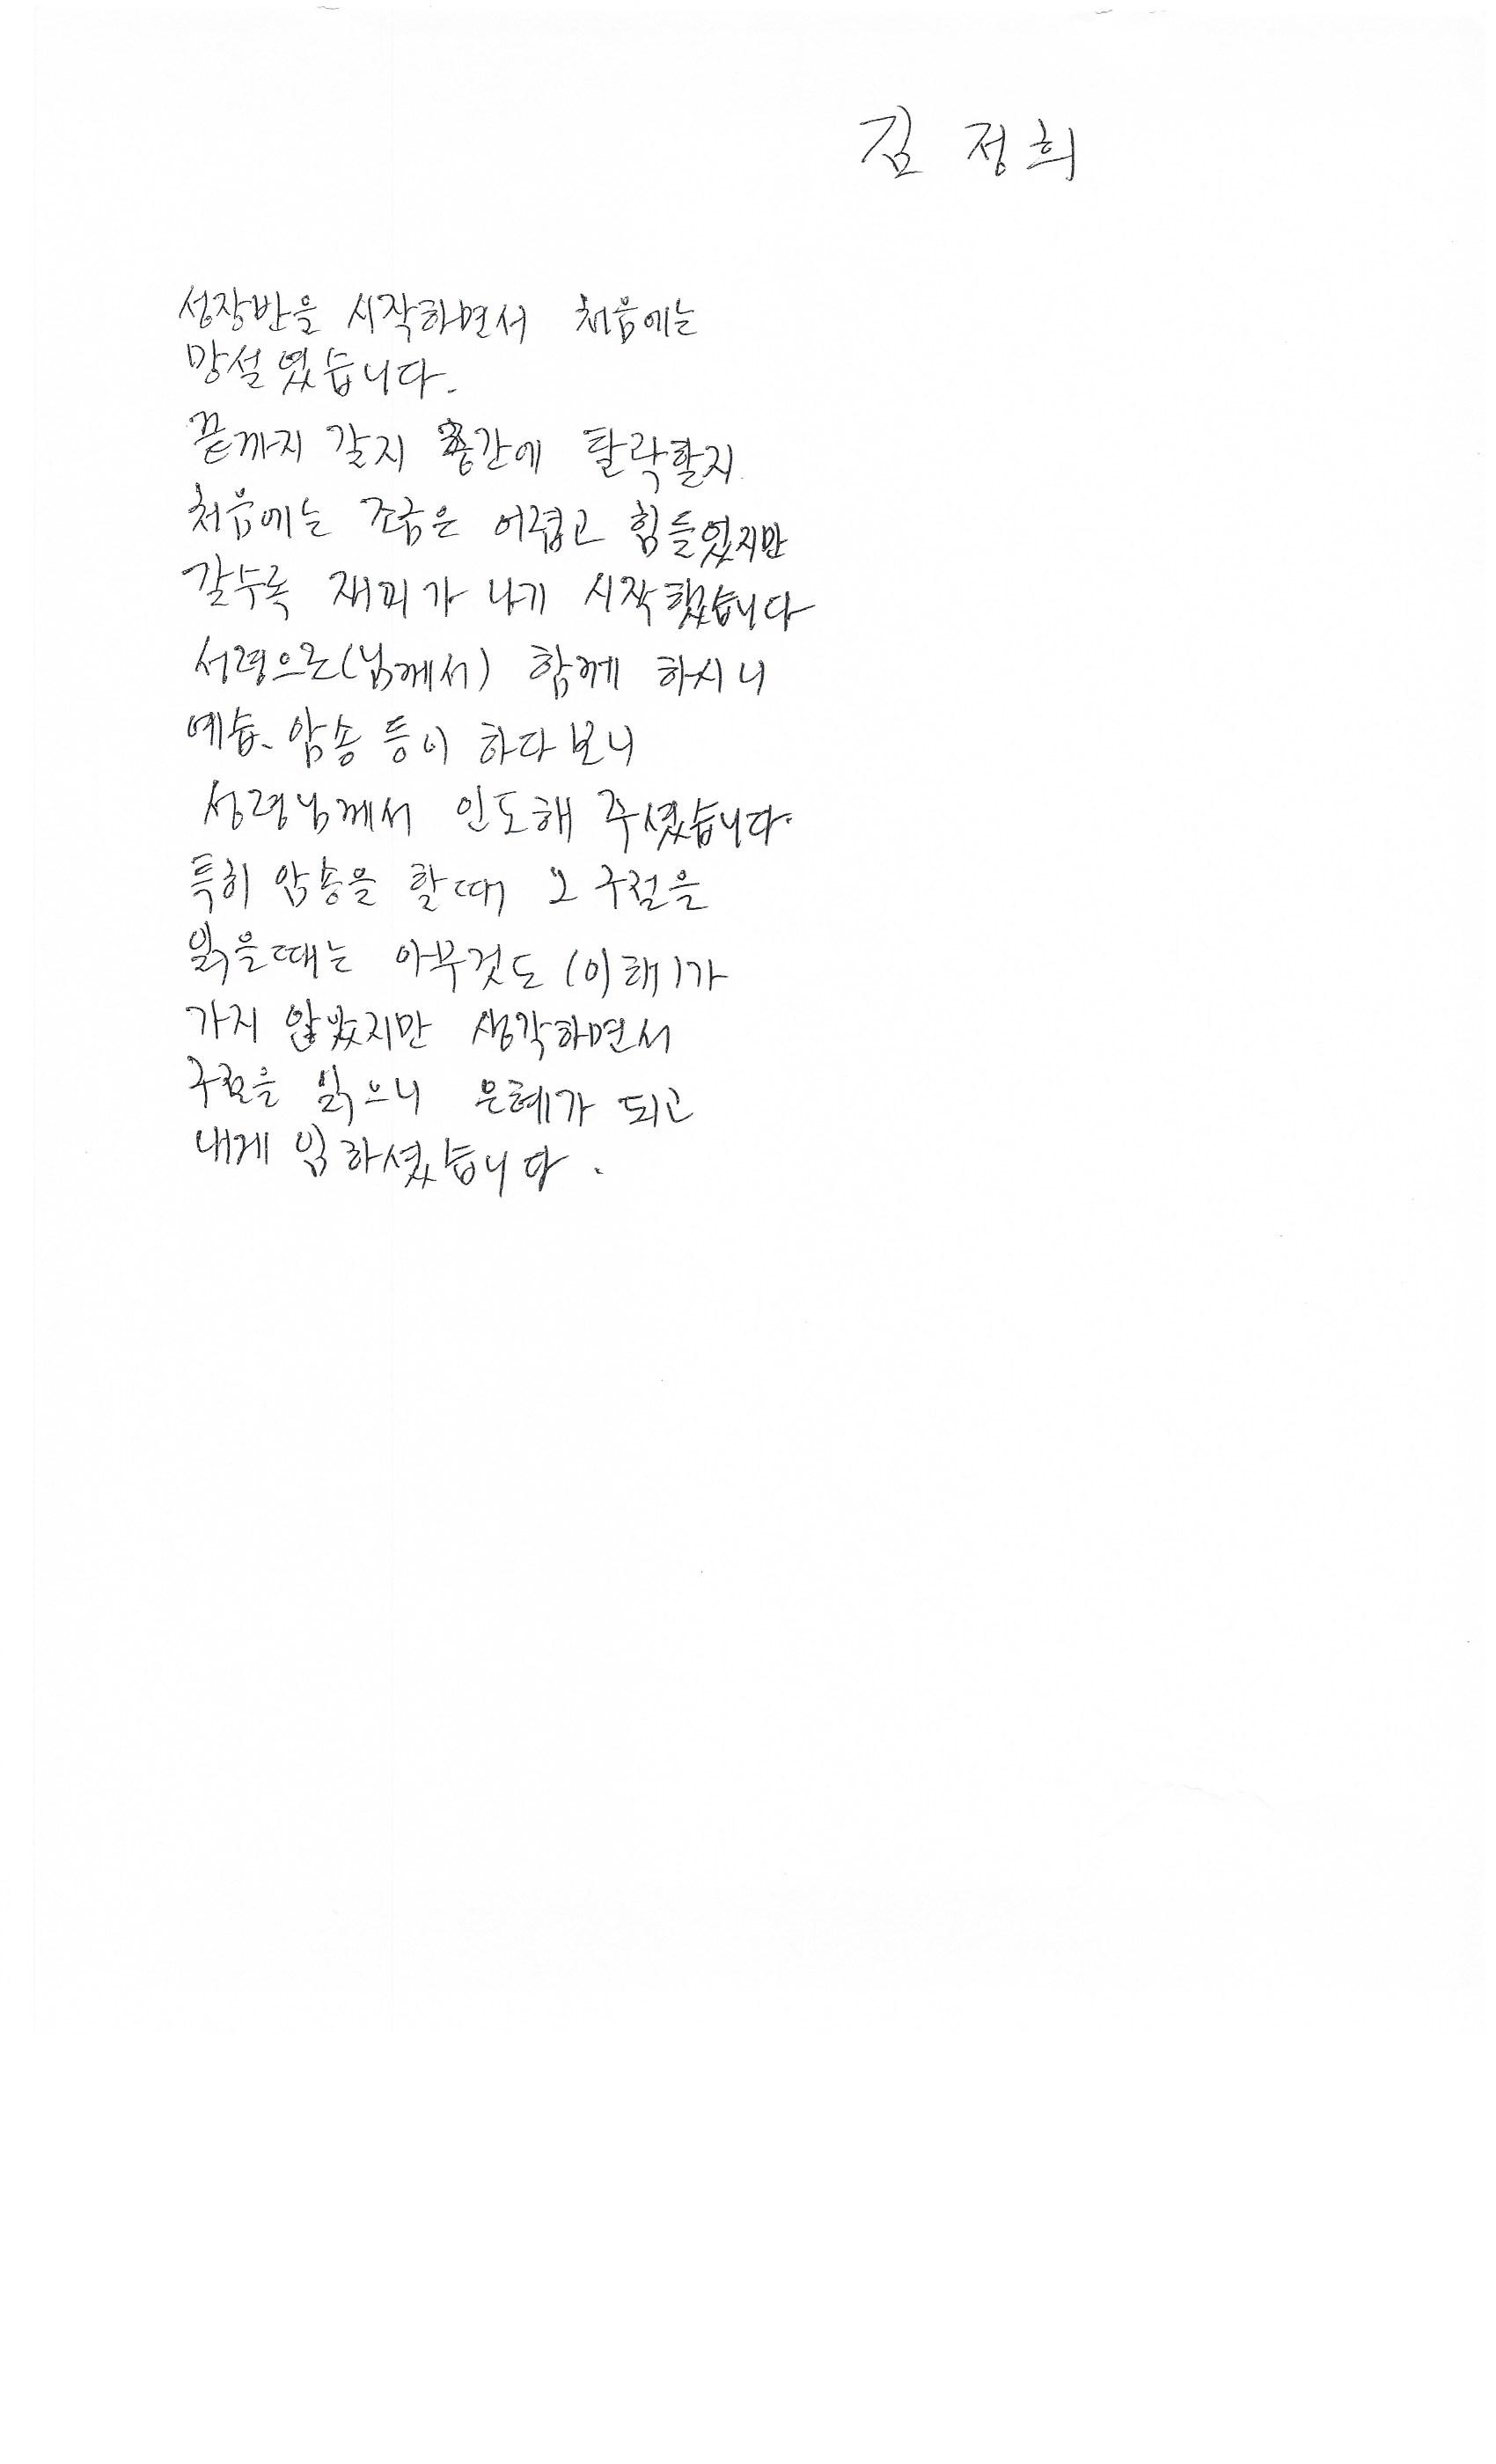 김 정희
성장반을 시작하면서 처음에는
망설였습니다.
끝까지 갈지 중간에 탈락할지
처음에는 조금은 어렵고 힘들었지만
갈수록 재미가 나기 시작했습니다
서령으로(님께서) 함께 하시니
예습、암송 등이 하다보니
성령님께서 인도해 주셨습니다.
특히 암송을 할때 그 구절을
읽을때는 아무것도 (이해)가
가지 않았지만 생각하면서
구절을 읽으니 은혜가 되고
내게 임하셨습니다.